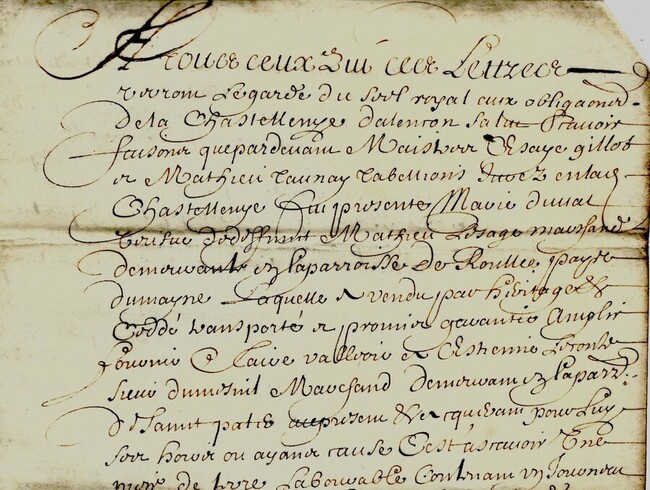 A tous ceux qui ces Lettres
verront Le garde du seel royal aux obligaons
De la Chastellenye dalencon salut scavoir
faisons que pardevant Maistres Esaye gillot
et Mathieu Launay Tabellions Jurez en lad
Chastellenye fut presente Marie duval
veufue de deffunt Mathieu Lesage marchand
demeurante en la parroisse De Roullee paye
dumayne Laquelle a vendu par heritage &
Ceddé transporté et promis garantir
fournir & faire valloir a Estienne Leconte
sieur dumesnil Marchand demeurant en la parr
de Saint pater present & acquerant pour Luy
ses hoirs ou ayans cause Cest ascavoir Une
de terre Labourable Contenant un Journeau